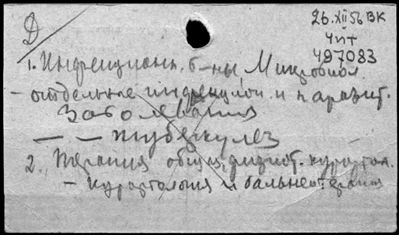 Д
26.XII 56 ВК
Чит
497083
1. Инфекционн. б-ни Микробиол
- отдельные инфекцион. и паразит.
заболевания
— — туберкулез
2. Терапия общ., физиот. курортол.
- курортология и бальнеотерапия